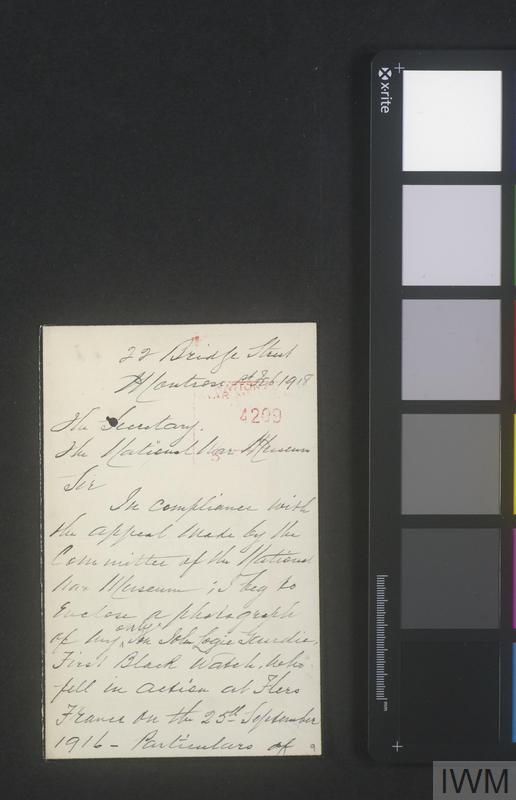 22 Bridge Street
Montrose Feb 1918
4299
The Secretary.
The National War Museum
Sir
In compliance with
the appeal made by the
Committee of the National
War Museum; I beg to
Enclose a photograph
of my only Son John Logie
First Black Watch, who
fell in action at Flers
France on the 25th September
1916 - Particulars of
x-rite
mm
IWM